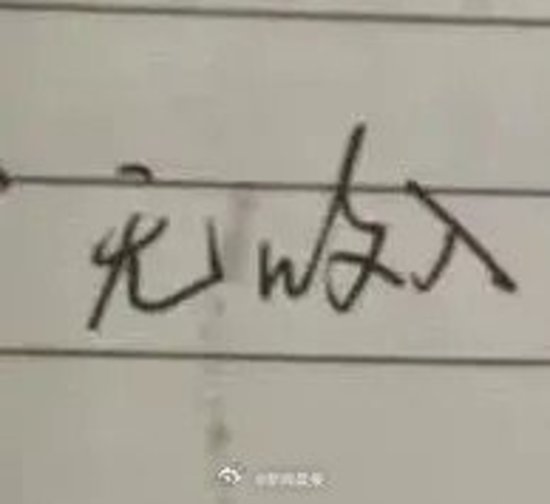 无收入